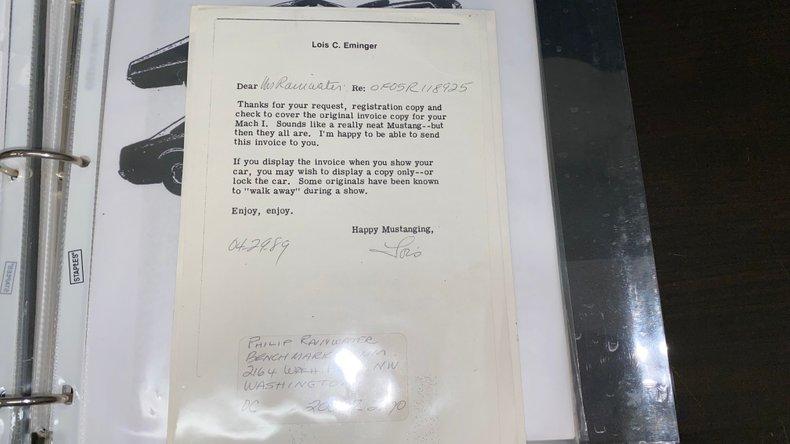 Lois C. Eminger
Dear Mr Rainwater Re: 0F05R118925
Thanks for your request, registration copy and
check to cover the original invoice copy for your
Mach I. Sounds like a really neat Mustang--but
then they all are. I'm happy to be able to send
this invoice to you.
If you display the invoice when you show your
car, you may wish to display a copy only--or
lock the car. Some originals have been known
to "walk away" during a show.
Enjoy, enjoy.
Happy Mustanging,
04.29.89 Lois
PHILIP RAINWATER
BENCHMARK
2164 NW
WASHINGTON
DC
STAPLES